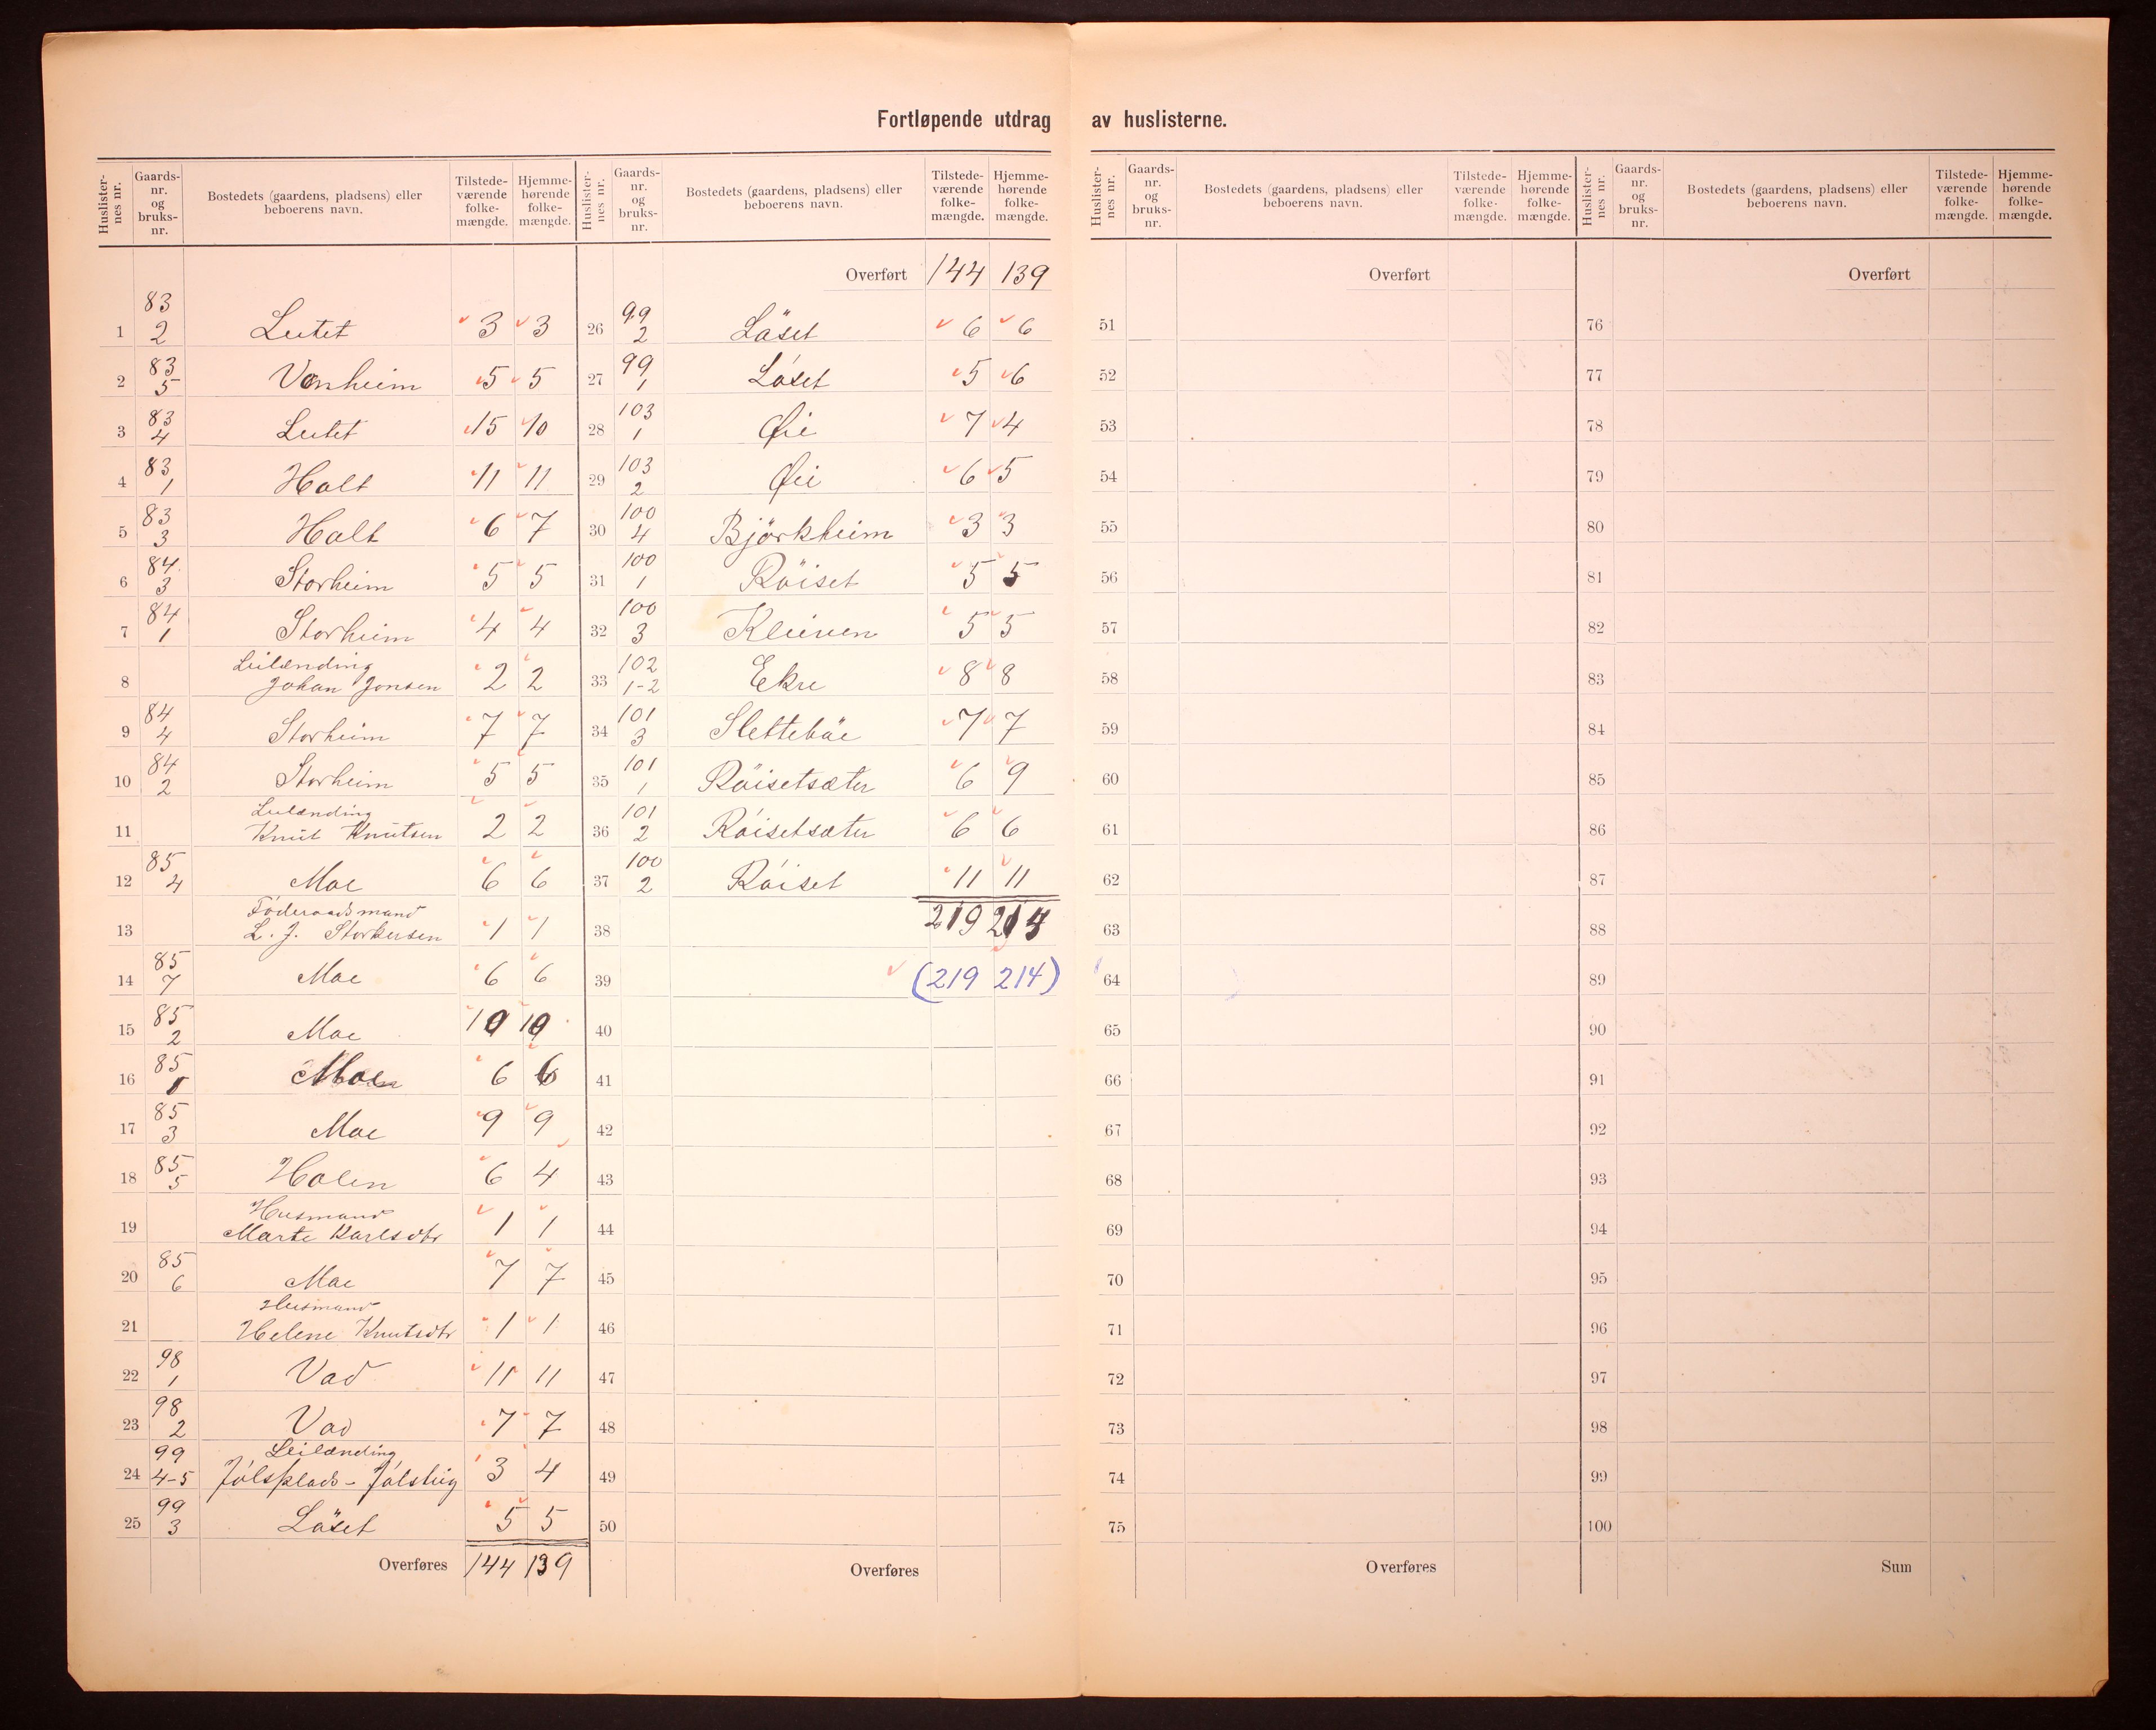 Fortløpende utdrag av huslisterne.
Huslister-nes nr. | Gaards-nr. og bruks-nr. | Bostedets (gaardens, pladsens) eller beboerens navn. | Tilstede-værende folke-mængde. | Hjemme-hørende folke-mængde.
1 | 83 2 | Lutet | 3 | 3
2 | 83 5 | Vonheim | 5 | 5
3 | 83 4 | Lutet | 15 | 10
4 | 83 1 | Holt | 11 | 11
5 | 83 3 | Holt | 6 | 7
6 | 84 3 | Storheim | 5 | 5
7 | 84 1 | Storheim | 4 | 4
8 | Leilænding Johan Jonsen | 2 | 2
9 | 84 4 | Storheim | 7 | 7
10 | 84 2 | Storheim | 5 | 5
11 | Leilænding Knut Knutsen | 2 | 2
12 | 85 4 | Moe | 6 | 6
13 | Föderaadsmand L. J. Storkersen | 1 | 1
14 | 85 7 | Moe | 6 | 6
15 | 85 2 | Moe | 10 | 10
16 | 85 | Moen | 6 | 6
17 | 85 3 | Moe | 9 | 9
18 | 85 5 | Holen | 6 | 4
19 | Husmand Marte Karlsdtr | 1 | 1
20 | 85 6 | Moe | 7 | 7
21 | Husmand Helene Knutsdtr | 1 | 1
22 | 98 1 | Vad | 11 | 11
23 | 98 2 | Vad | 7 | 7
24 | 99 4-5 | Leilænding Jölsplads - Jölstig | 3 | 4
25 | 99 3 | Löset | 5 | 5
Overføres 144 139
Huslister-nes nr. | Gaards-nr. og bruks-nr. | Bostedets (gaardens, pladsens) eller beboerens navn. | Tilstede-værende folke-mængde. | Hjemme-hørende folke-mængde.
Overført 144 139
26 | 99 2 | Löset | 6 | 6
27 | 99 1 | Löset | 5 | 6
28 | 103 1 | Øie | 7 | 4
29 | 103 2 | Øie | 6 | 5
30 | 100 4 | Björkheim | 3 | 3
31 | 100 1 | Röiset | 5 | 5
32 | 100 3 | Kleiven | 5 | 5
33 | 102 1-2 | Ekre | 8 | 8
34 | 101 3 | Sletteböe | 7 | 7
35 | 101 1 | Röisetsæter | 6 | 9
36 | 101 2 | Röisetsæter | 6 | 6
37 | 100 2 | Röiset | 11 | 11
38 | 219 | 214
39 | (219 214)
40
41
42
43
44
45
46
47
48
49
50
Overføres
Huslister-nes nr. | Gaards-nr. og bruks-nr. | Bostedets (gaardens, pladsens) eller beboerens navn. | Tilstede-værende folke-mængde. | Hjemme-hørende folke-mængde.
Overført
51
52
53
54
55
56
57
58
59
60
61
62
63
64
65
66
67
68
69
70
71
72
73
74
75
Overføres
Huslister-nes nr. | Gaards-nr. og bruks-nr. | Bostedets (gaardens, pladsens) eller beboerens navn. | Tilstede-værende folke-mængde. | Hjemme-hørende folke-mængde.
Overført
76
77
78
79
80
81
82
83
84
85
86
87
88
89
90
91
92
93
94
95
96
97
98
99
100
Sum